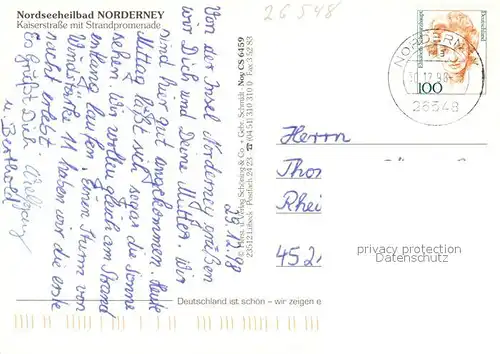 Nordseeheilbad NORDERNEY
Kaiserstraße mit Strandpromenade
26548
29.12.98
Von der Insel Norderney grüßen
wir Dich und Deine Mutter. Wir
sind hier gut angekommen. Heute
Mittag läßt sich sogar die Sonne
sehen. Wir wollen gleich am Strand
entlang laufen. Einen Sturm von
Windstärke 11 haben wir die erste
Nacht erlebt.
Es grüßt Dich
Wolfgang
u. Berthold
© Kunst- u. Verlag Schöning & Co. · Gebr. Schmidt · Noy CS 6459
23512 Lübeck · Postfach 24 23 ☎ (04 51) 310 310 0 · Fax 3 52 83
Deutschland
100
NORDERNEY
30.12.98
26548
Herrn
Thos
Rhei
452
privacy protection
Datenschutz
Deutschland ist schön – wir zeigen e